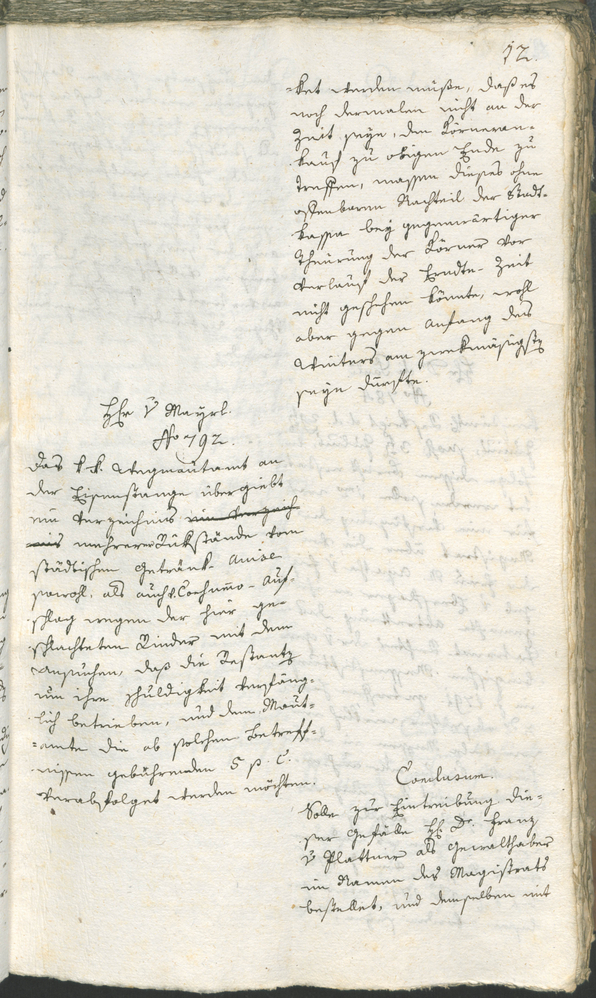 12.
-ket werden müße, daß es
noch dermalen nicht an der
Zeit seye, den Körneran-
kauf zu obigen Ende zu
treffen, massen dieses ohne
offenbaren Nachteil der Stadt-
kassa bey gegenwärtiger
Theürung der Körner vor
Verlauf der Erndte-Zeit
nicht geschehen könnte, wohl
aber gegen Anfang des
Winters am zwekmäsigsten
seyn dürfte.
Hr v Mayrl.
No 792.
Das k.k. Wegmautamt an
der Eisenstange übergiebt
ein Verzeichnis ein Verzeich
nis mehrerer Rükstände vom
städtischen Getränk-
sowohl, als auch Auf-
schlag wegen der hier ge-
schlachteten Rinder mit dem
Ansuchen, daß die Restantz
um ihre Schuldigkeit empfäng-
lich betrieben, und dem Maut-
-amte die ob solchen Betreff-
nissen gebührenden 5 p. C.
verabfolget werden möchten.
Conclusum.
Solle zur Eintreibung die-
ser Gefälle H. Dr. Franz
v Plattner als Gewalthaber
im Namen des Magistrats
bestellet, und demselben mit